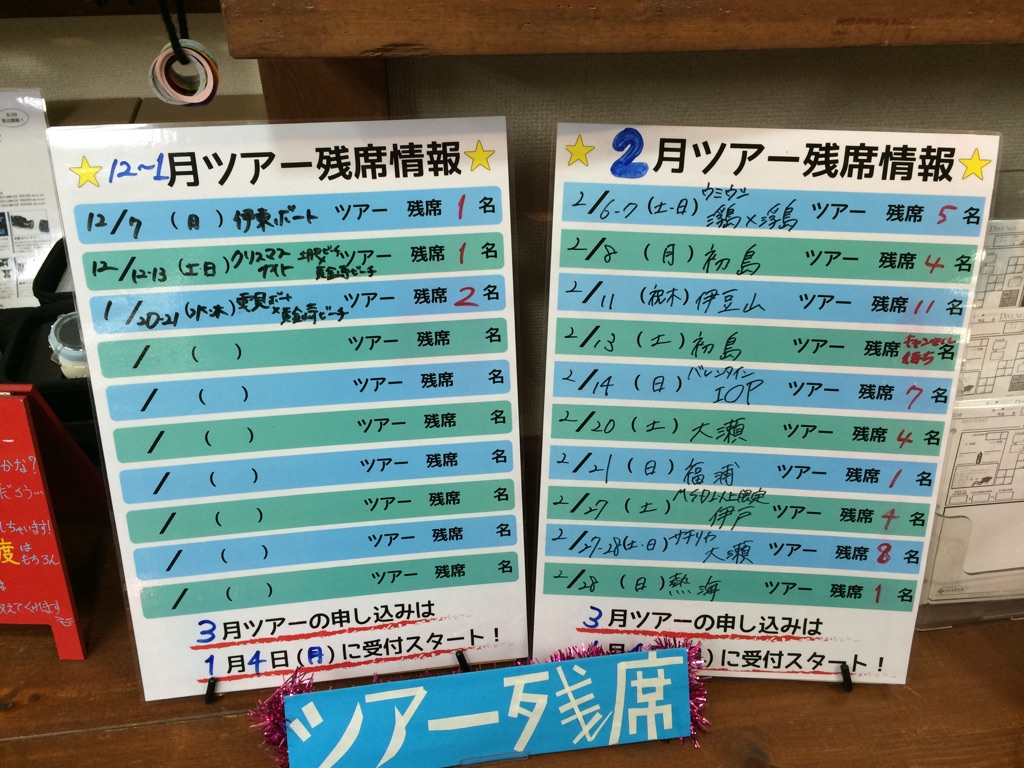 12~1月ツアー残席情報
12/7 (月) 伊東ボート ツアー 残席 1 名
12/12-13 (土日) クリスマスナイト 土肥ビーチ×黄金崎ビーチ ツアー 残席 1 名
1/20-21 (水・木) 雲見ボート×黄金崎ビーチ ツアー 残席 2 名
/ ( ) ツアー 残席 名
/ ( ) ツアー 残席 名
/ ( ) ツアー 残席 名
/ ( ) ツアー 残席 名
/ ( ) ツアー 残席 名
/ ( ) ツアー 残席 名
/ ( ) ツアー 残席 名
3月ツアーの申し込みは
1月4日(月)に受付スタート!
2月ツアー残席情報
2/6-7 (土・日) ウミウシ ×浮島 ツアー 残席 5 名
2/8 (月) 初島 ツアー 残席 4 名
2/11 (祝木) 伊豆山 ツアー 残席 11 名
2/13 (土) 初島 ツアー 残席 キャンセル待ち 名
2/14 (日) バレンタイン IOP ツアー 残席 7 名
2/20 (土) 大瀬 ツアー 残席 4 名
2/21 (日) 福浦 ツアー 残席 1 名
2/27 (土) MSD以上限定 伊戸 ツアー 残席 4 名
2/27-28 (土・日) 大瀬 ツアー 残席 8 名
2/28 (日) 熱海 ツアー 残席 1 名
3月ツアーの申し込みは
)に受付スタート!
ツアー残席
かな?
だろう…
しちゃいます!
度は
もちろん
は